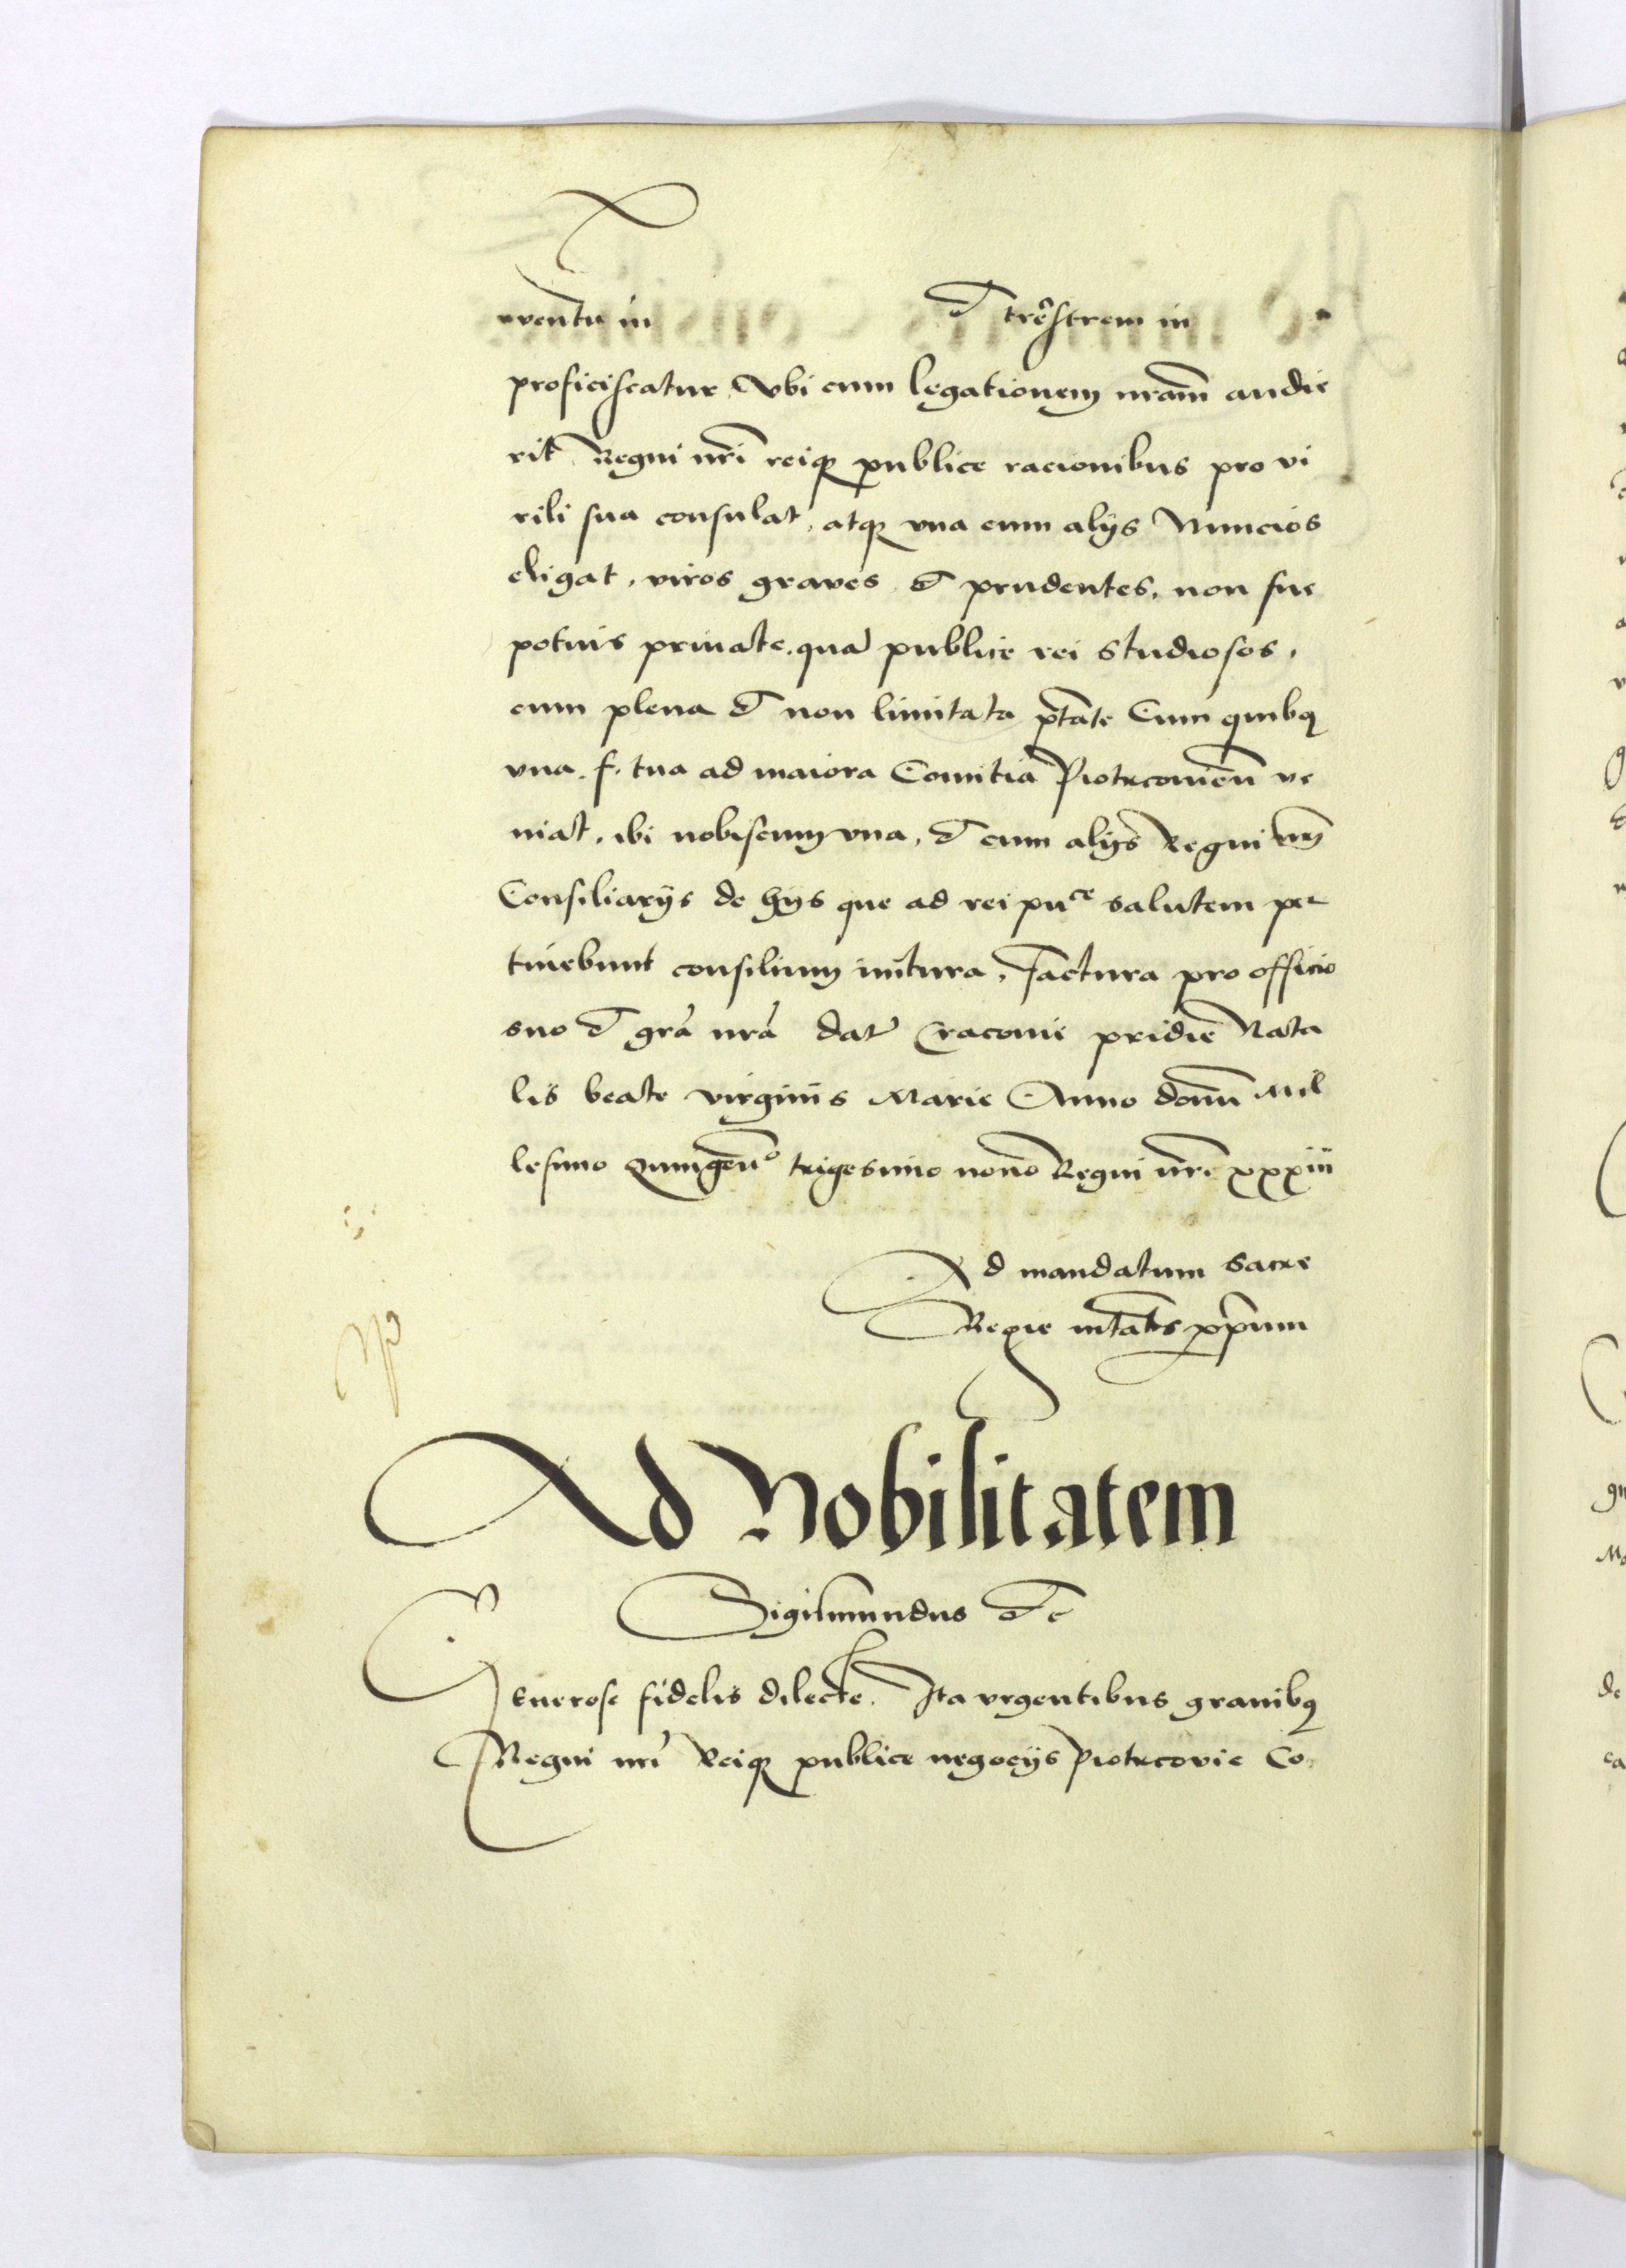 uentu in et tre͂strem in
proficiscatur, Vbi cum legationem nram̅ audie
rit Regni nrĩ reiq; publice racionibus pro vi
rili sua consulat, atq; vna cum alijs Nuncios
eligat, viros graues et prudentes, non sue
potius priuate, qua̅ publice rei studiosos,
cum plena et non limitata ptãte Cum quibq
vna. f. tua ad maiora Comitia Piotrcouien̅ ve
niat, ibi nobiscum vna, et cum alijs Regni nrĩ
Consiliarijs de hijs que ad rei puce salutem per
tinebunt consilium initura, Factura pro officio
suo et grã nrã dat̃ Cracouie pridie Nata
lis beate virginis Marie Anno domĩ Mil
lesimo Quingen̅o trigesimo nono Regni nrĩ xxxiii
Ad mandatum sacre
Regie mtãtis p̱p̃rium
Ad Nobilitatem
Sigismundus etc
Generose fidelis dilecte. Ita vrgentibus grauibq
Regni nrĩ Reiq; publice negocijs Piotrcovie Co